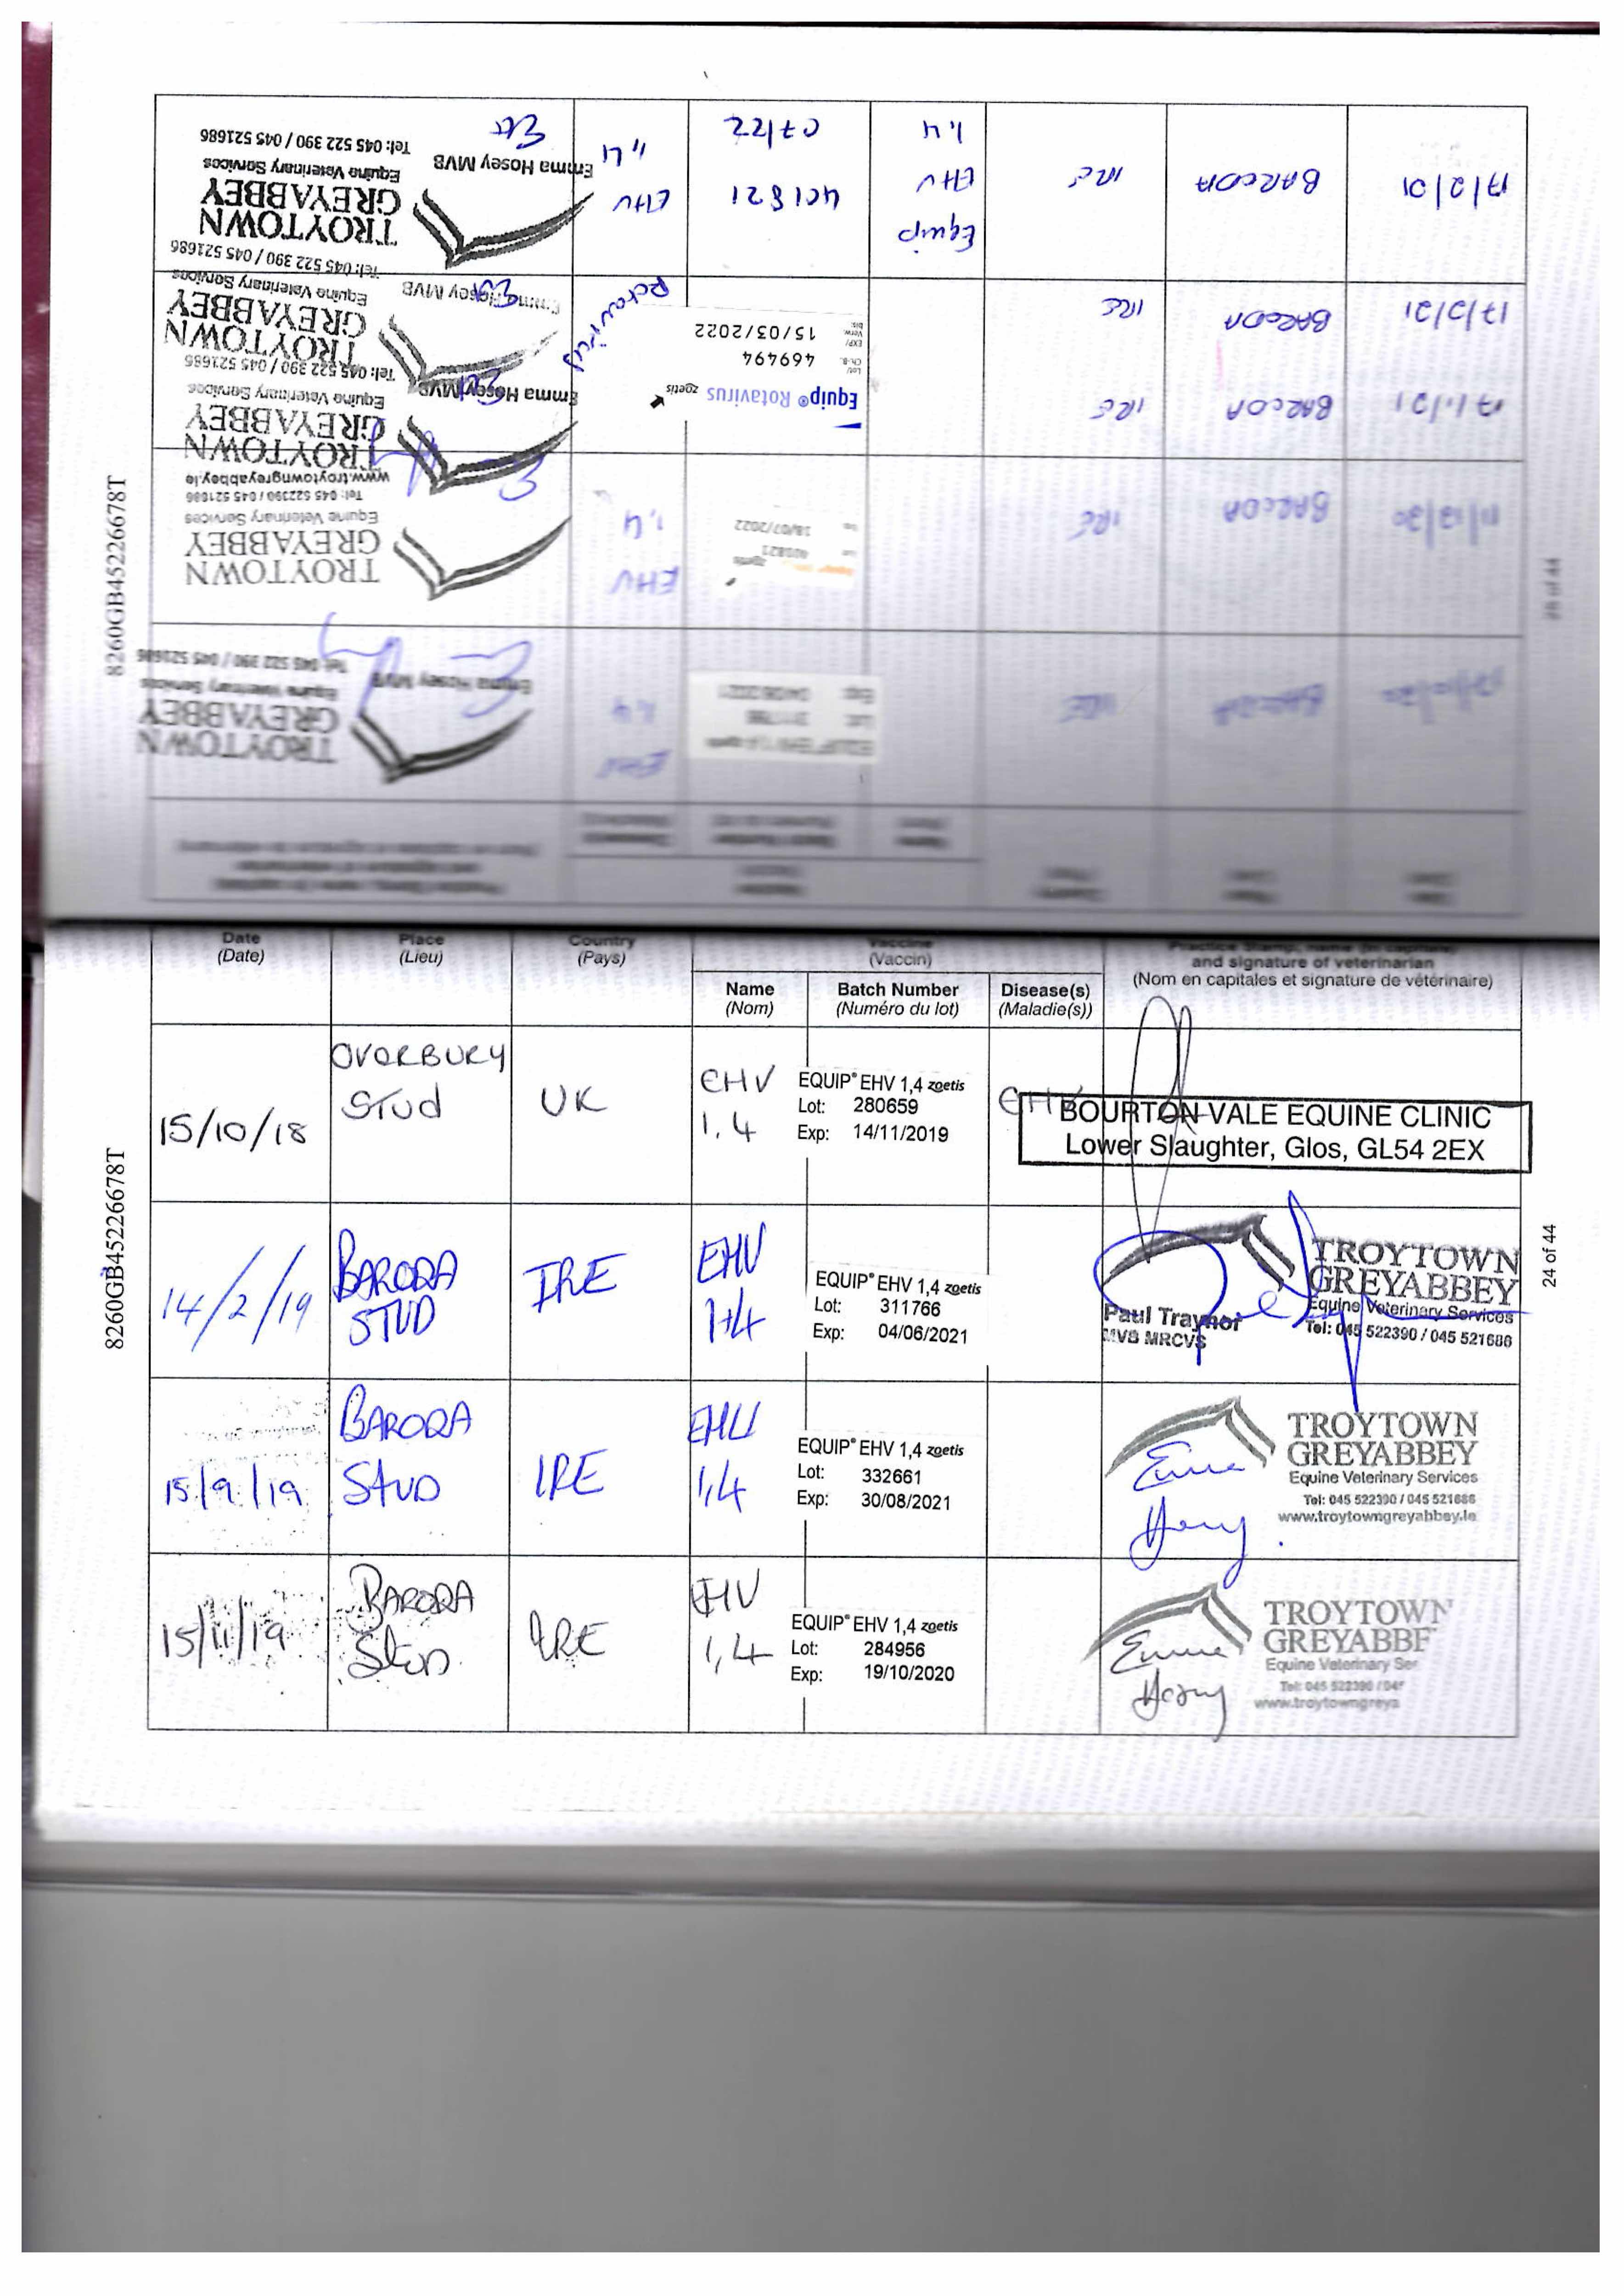 8260GB45226678T
17/2/21
BARODA
IRE
Equip
EHV
1,4
401821
07/22
EHV
1,4
TROYTOWN
GREYABBEY
Equine Veterinary Services
Emma Hosey MVB
Tel: 045 522 390 / 045 521686
17/2/21
BARODA
IRE
17/1/21
BARODA
IRE
Equip® Rotavirus zoetis
469494
15/03/2022
Rotavirus
TROYTOWN
GREYABBEY
Equine Veterinary Services
Emma Hosey MVB
Tel: 045 522 390 / 045 521686
TROYTOWN
GREYABBEY
Equine Veterinary Services
Emma Hosey MVB
Tel: 045 522 390 / 045 521686
BARODA
IRE
zoetis
18/07/2022
EHV
1,4
TROYTOWN
GREYABBEY
Equine Veterinary Services
Tel: 045 522390 / 045 521686
www.troytowngreyabbey.ie
BARODA
IRE
EQUIP EHV 1,4 zoetis
Lot: 311766
Exp: 04/06/2021
EHV
1,4
TROYTOWN
GREYABBEY
Equine Veterinary Services
Emma Hosey MVB
Tel: 045 522 390 / 045 521686
Date
(Date)
Place
(Lieu)
Country
(Pays)
Vaccine
(Vaccin)
Practice Stamp, name (in capitals)
and signature of veterinarian
(Nom en capitales et signature de vétérinaire)
Name
(Nom)
Batch Number
(Numéro du lot)
Disease(s)
(Maladie(s))
15/10/18
OVERBURY
Stud
UK
EHV
1,4
EQUIP® EHV 1,4 zoetis
Lot: 280659
Exp: 14/11/2019
EHV
BOURTON VALE EQUINE CLINIC
Lower Slaughter, Glos, GL54 2EX
14/2/19
BARODA
STUD
IRE
EHV
1+4
EQUIP® EHV 1,4 zoetis
Lot: 311766
Exp: 04/06/2021
TROYTOWN
GREYABBEY
Equine Veterinary Services
Tel: 045 522390 / 045 521686
Paul Traynor
MVB MRCVS
15/9/19
BARODA
STUD
IRE
EHV
1,4
EQUIP® EHV 1,4 zoetis
Lot: 332661
Exp: 30/08/2021
TROYTOWN
GREYABBEY
Equine Veterinary Services
Tel: 045 522390 / 045 521686
www.troytowngreyabbey.ie
Emma
Hosey
15/11/19
BARODA
Stud
IRE
EHV
1,4
EQUIP® EHV 1,4 zoetis
Lot: 284956
Exp: 19/10/2020
TROYTOWN
GREYABBE
Equine Veterinary Ser
Tel: 045 522390 / 045
www.troytowngreya
Emma
Hosey
8260GB45226678T
24 of 44